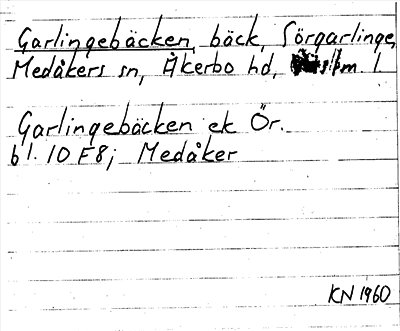 Garlingebäcken, bäck, Sörgarlinge,
Medåkers sn, Åkerbo hd, Västm. l.
Garlingebäcken ek Ör.
bl. 10 F8; Medåker
KN 1960